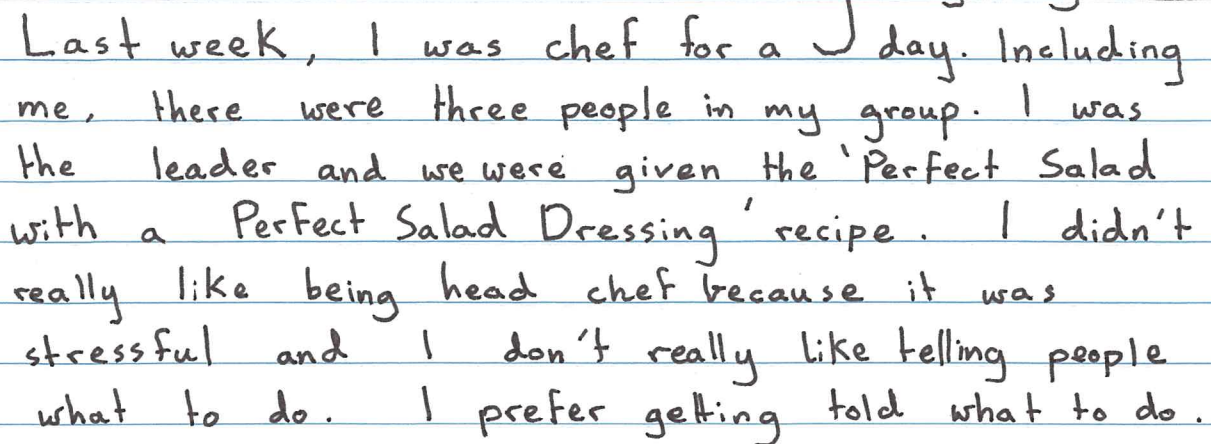 Last week, I was chef for a day. Including
me, there were three people in my group. I was
the leader and we were given the 'Perfect Salad
with a Perfect Salad Dressing' recipe. I didn't
really like being head chef because it was
stressful and I don't really like telling people
what to do. I prefer getting told what to do.